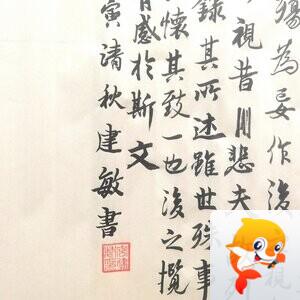 殤為妄作後
視昔川悲夫
錄其所述雖世殊事
懷其致一也後之攬
感於斯文
寅清秋建敏書